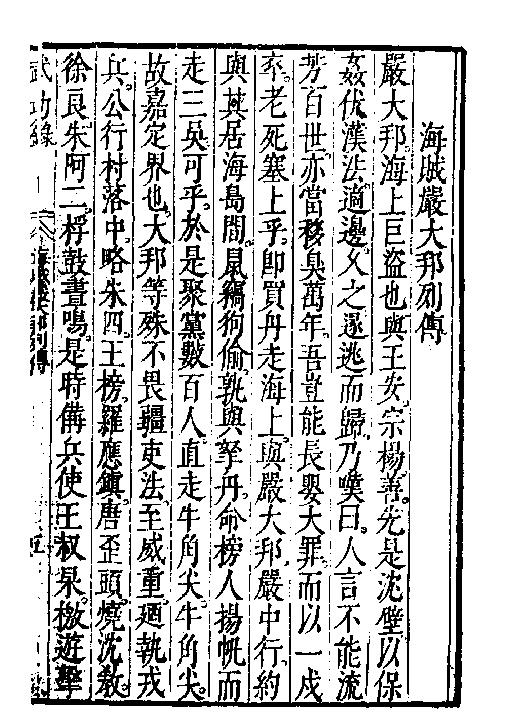 海賊嚴大邦列傳
嚴大邦海上巨盜也與王安宗楊善先是沈壁以保
姦伏漢法適邊久之遂逃而歸乃嘆曰人言不能流
芳百世亦當移臭萬年吾豈能長嬰大罪而以一戍
卒老死塞上乎即買丹走海上與嚴大邦嚴中行約
與其居海島間鼠竊狗偷孰與拏丹命榜人揚帆而
走三吳可乎於是聚黨數百人直走牛角尖牛角尖
故嘉定界也大邦等殊不畏疆吏法至威重廼執戎
兵公行村落中略朱四王榜羅應鎮唐歪頭燒沈敖
徐良朱阿二桴鼓晝鳴是時備兵使王叔杲檄遊擊
武功錄